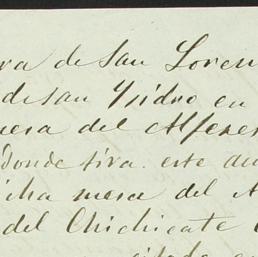 ra de San Loren
de San Ysidro en
mesa del Alferes
donde sirva este du
cha mesa del A
del Chichicate
citado